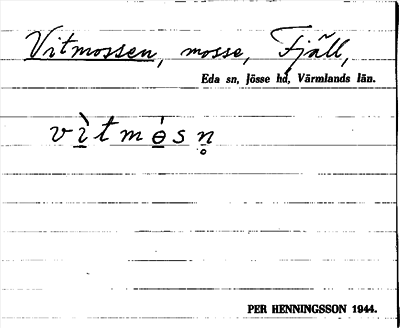 Vitmossen, mosse, Fjäll,
Eda sn, Jösse hd, Värmlands län.
vì̠tmɵ̠́sn̥
PER HENNINGSSON 1944.